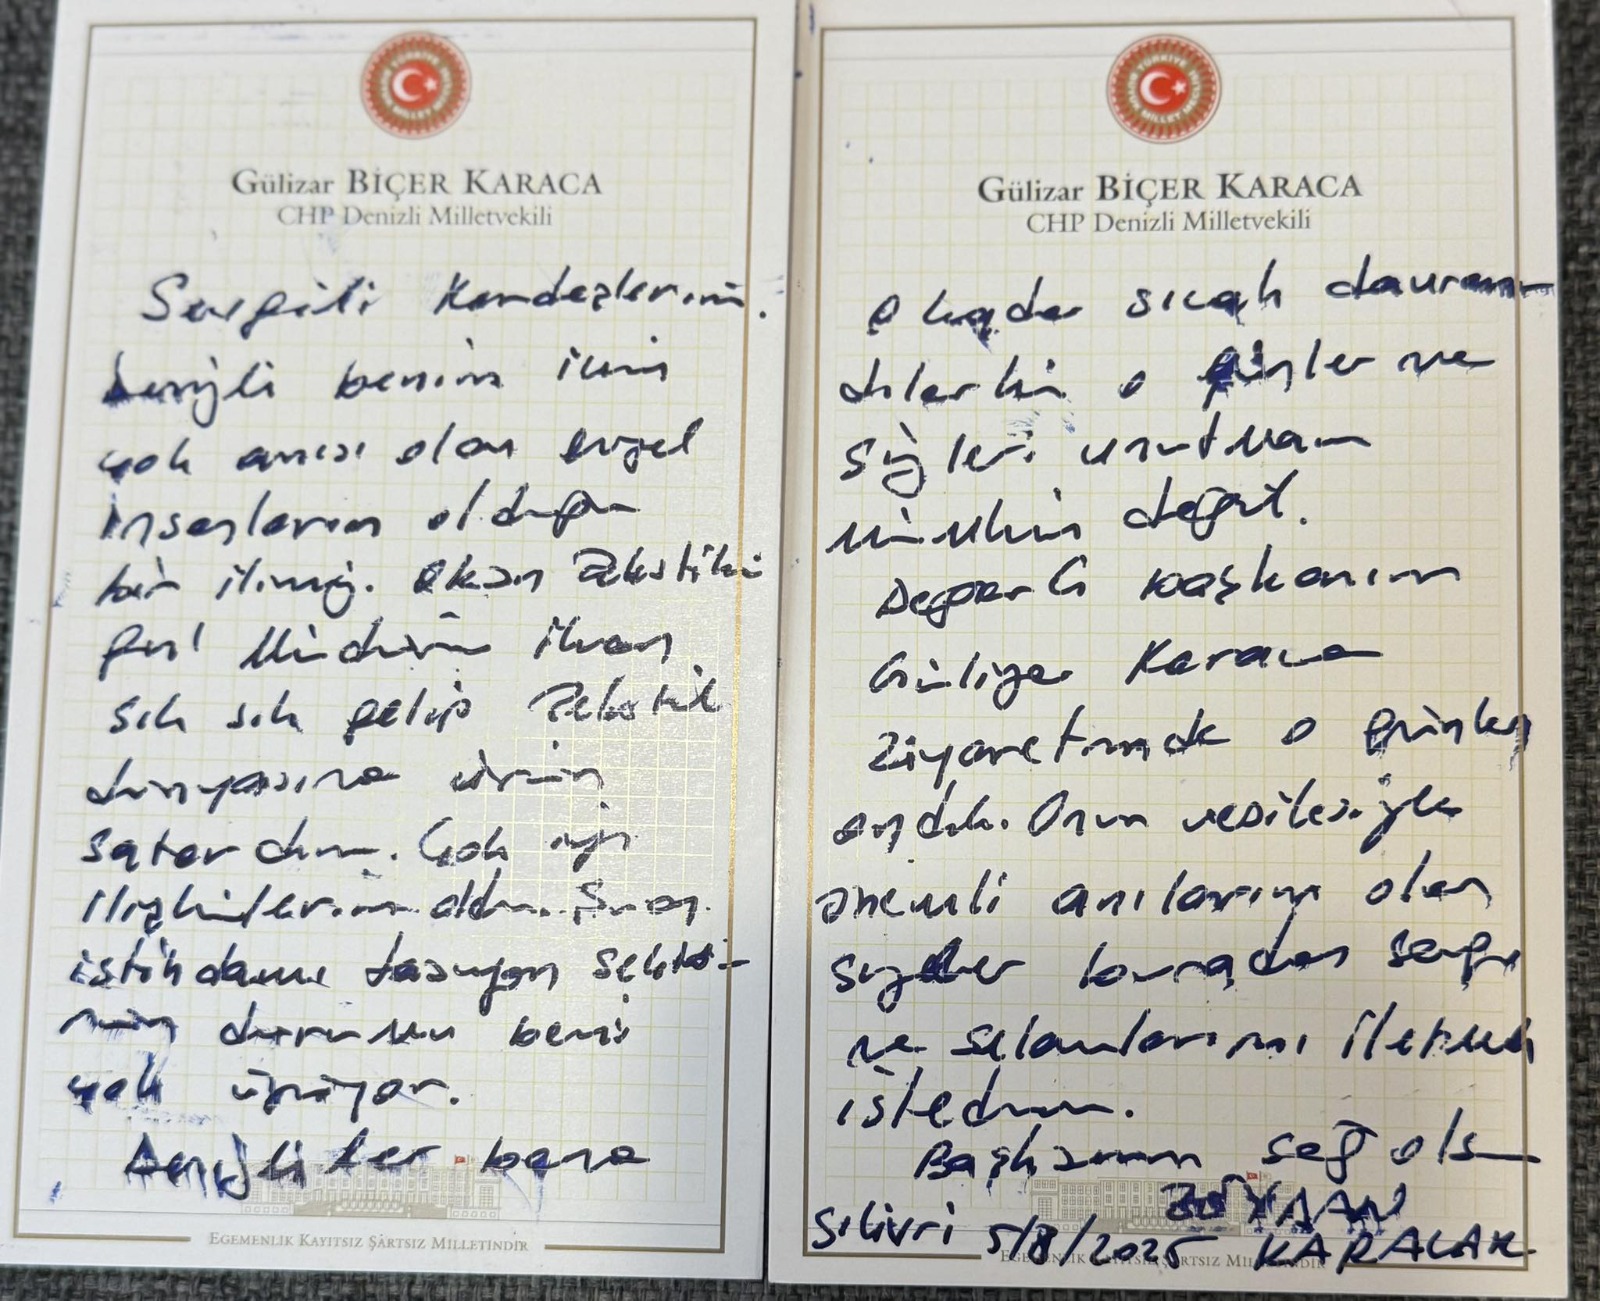 TÜRKİYE
MİLLET
Gülizar BİÇER KARACA
CHP Denizli Milletvekili
Sevgili Kardeşlerim.
Denizli benim için
çok anısı olan güzel
insanların olduğu
bir ilimiz. Tekstilin
gnl Müdürü iken
sık sık gelip Tekstil
dünyasına ürün
satardım. Çok iyi
ilişkilerim oldu. Şu an
istihdamı taşıyan sektö-
rün durumu beni
çok üzüyor.
Denizliler bana
EGEMENLİK KAYITSIZ ŞARTSIZ MİLLETİNDİR
TÜRKİYE
MİLLET
Gülizar BİÇER KARACA
CHP Denizli Milletvekili
o kadar sıcak davran-
dılar ki o günler ve
sizleri unutmam
mümkün değil.
Değerli Başkanım
Gülizar Karaca
ziyaretimde o günleri
andık. Onun vesilesiyle
önemli anılarım olan
sizlere buradan sevgi
ve selamlarımı iletmek
istedim.
Başkanım sağ olsun
Silivri 5/8/2025 KARALAR
EGEMENLİK KAYITSIZ ŞARTSIZ MİLLETİNDİR